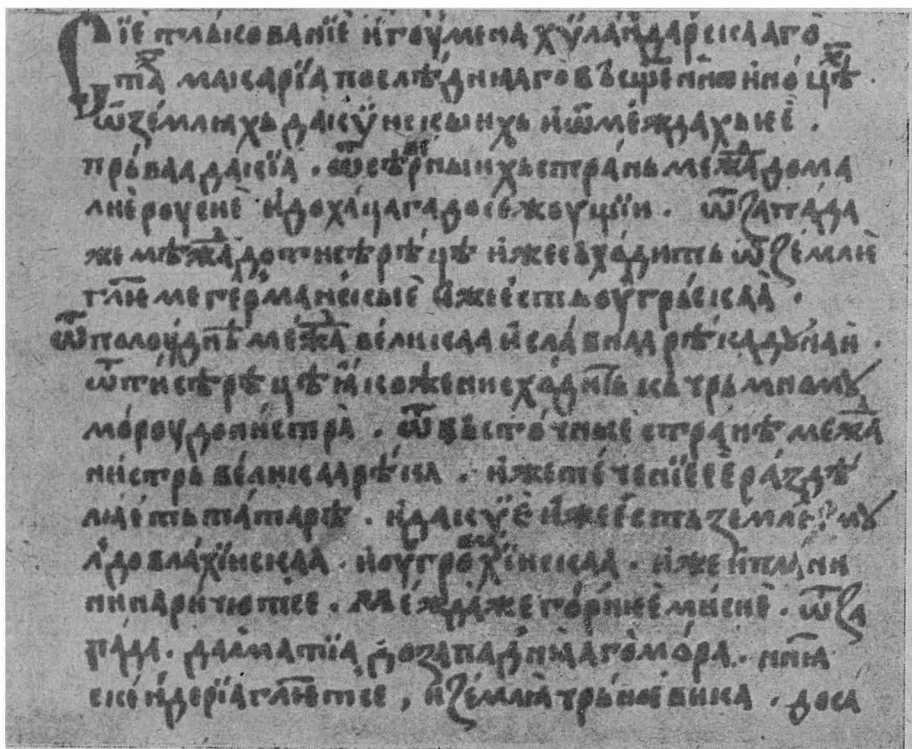 Сїе тлькованїе игоумена хўландарскааго
кѷ҃ макарїа послѣднꙗаго въ сщ҃енноинѡцѣ
ѿ земляхь дакўискыихь и ѿ междахь ѥ .
прьваа дакїа . ѿ сѣверныихь странь межда дома
лиѥ роускѥ и доха цага до секоуцїи . ѿ запада
же мѣжда до тисѣ рѣцѣ иже съходить ѿ землѥ
гл҃ѥме германскыѥ иже ѥсть оугрьскаа .
ѿ полоуднѣ межда великаа и славнаа рѣка доунаи .
ѿ тисѣ рѣцѣ ꙗкоже нисходить кь трьмномꙋ
мороу до нистра . ѿ въсточныѥ странѣ межда
нистрь великаа рѣка . иже теченїе ѥѥ раздѣ
лꙗѥть татарѣ . и дакўѥ иже ѥсть землѥ мꙋ
лдовлахїискаа . и оугровлахїискаа . иже и пл нн
ни наритютсе . междаже горнѥ мисиѥ . ѿ за
пада . далматїа до западнꙗаго мора . нн҃ꙗ
скендерїа гл҃ѥтсе , и землꙗ трьновика . до са